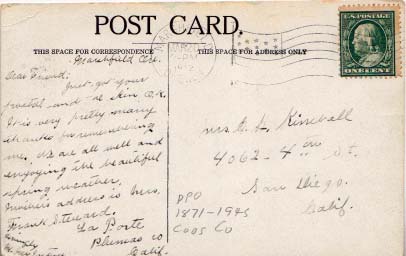 POST CARD.
THIS SPACE FOR CORRESPONDENCE
THIS SPACE FOR ADDRESS ONLY
U.S. POSTAGE
ONE CENT
Marshfield Ore.
Dear Friend:
Just got your
postal and skin O.K.
It is very pretty many
thanks for remembering
me. We are all well and
enjoying the beautiful
spring weather.
address is hers,
Frank Steward.
La Porte
Plumas Co
Calif.
Mrs. A. H. Kimball
4062-4th St.
San Diego.
Calif.
DPO
1871-1945
Coos Co